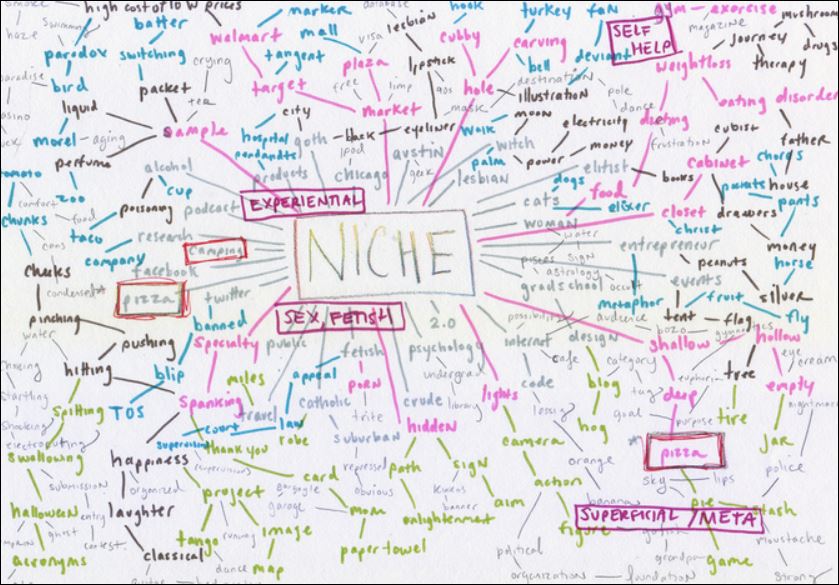 smoke
high cost of low prices
batter
marker
database
lesbian
hook
turkey
fan
gym
exercise
mushroom
haze
swimming
walmart
mall
visa
cubby
carving
SELF HELP
magazine
journey
drugs
paradox
switching
crying
tangent
plaza
lipstick
bell
deviant
weightloss
therapy
paradise
bird
packet
target
free
limp
hole
destination
illustration
pole dance
eating disorder
liquid
tea
market
mask
moon
dieting
morel
aging
sample
city
hospital
goth
black
eyeliner
walk
witch
electricity
frustration
cubist
father
ipod
money
perfume
pendants
austin
palm
power
elitist
cabinet
chords
alcohol
products
chicago
geek
lesbian
books
parents
house
zoo
cup
dogs
food
pants
comfort
poisoning
podcast
EXPERIENTIAL
cats
elixer
closet
drawers
chunks
food
woman
christ
taco
research
camping
NICHE
water
entrepreneur
money
company
pisces
sign
peanuts
horse
cheeks
facebook
astrology
gradschool
occult
events
condensed
pizza
twitter
metaphor
fruit
silver
pinching
banned
SEX FETISH
2.0
possibility
audience
tent
flag
fly
water
pushing
specialty
public
psychology
internet
design
bozo
gymnastics
shallow
hollow
hitting
fetish
cafe
category
eye
cream
blip
miles
appeal
porn
undergrad
code
blog
tug
euphoria
tree
empty
startling
spitting
TOS
spanking
travel
catholic
trite
crude
library
lights
goal
deep
nightmare
shocking
court
law
hidden
lessig
hog
purpose
tire
electrocuting
supervision
thank you
robe
suburban
camera
jar
swallowing
happiness
supervisors
repressed
path
sign
orange
pizza
police
submission
organized
card
action
sky
lips
project
gargoyle
obvious
banana
halloween
entry
laughter
garage
mom
enlightenment
banner
aim
pie
stash
ghost
contest
tango
running
image
figure
SUPERFICIAL / META
moustache
acronyms
classical
dance
map
paper towel
political
grandpa
game
organization
foundation
strong